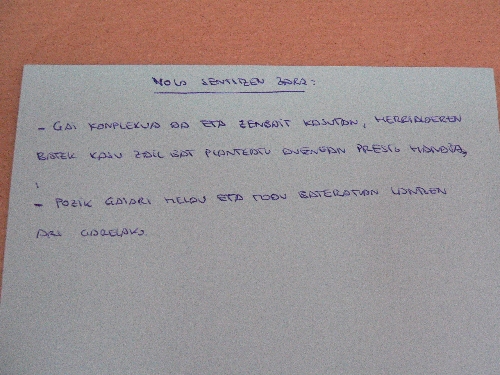 NOLA SENTITZEN ZARA:
- GAI KONPLEXUA DA ETA ZENBAIT KASUTAN, HERRIALDEREN
BATEK KASU ZAIL BAT PLANTEATU DUENEAN PRESIO HANDIA,
;
- POZIK GAIARI HELDU ETA MODU BATERATUAN LANTZEN
ARI GARELAKO.